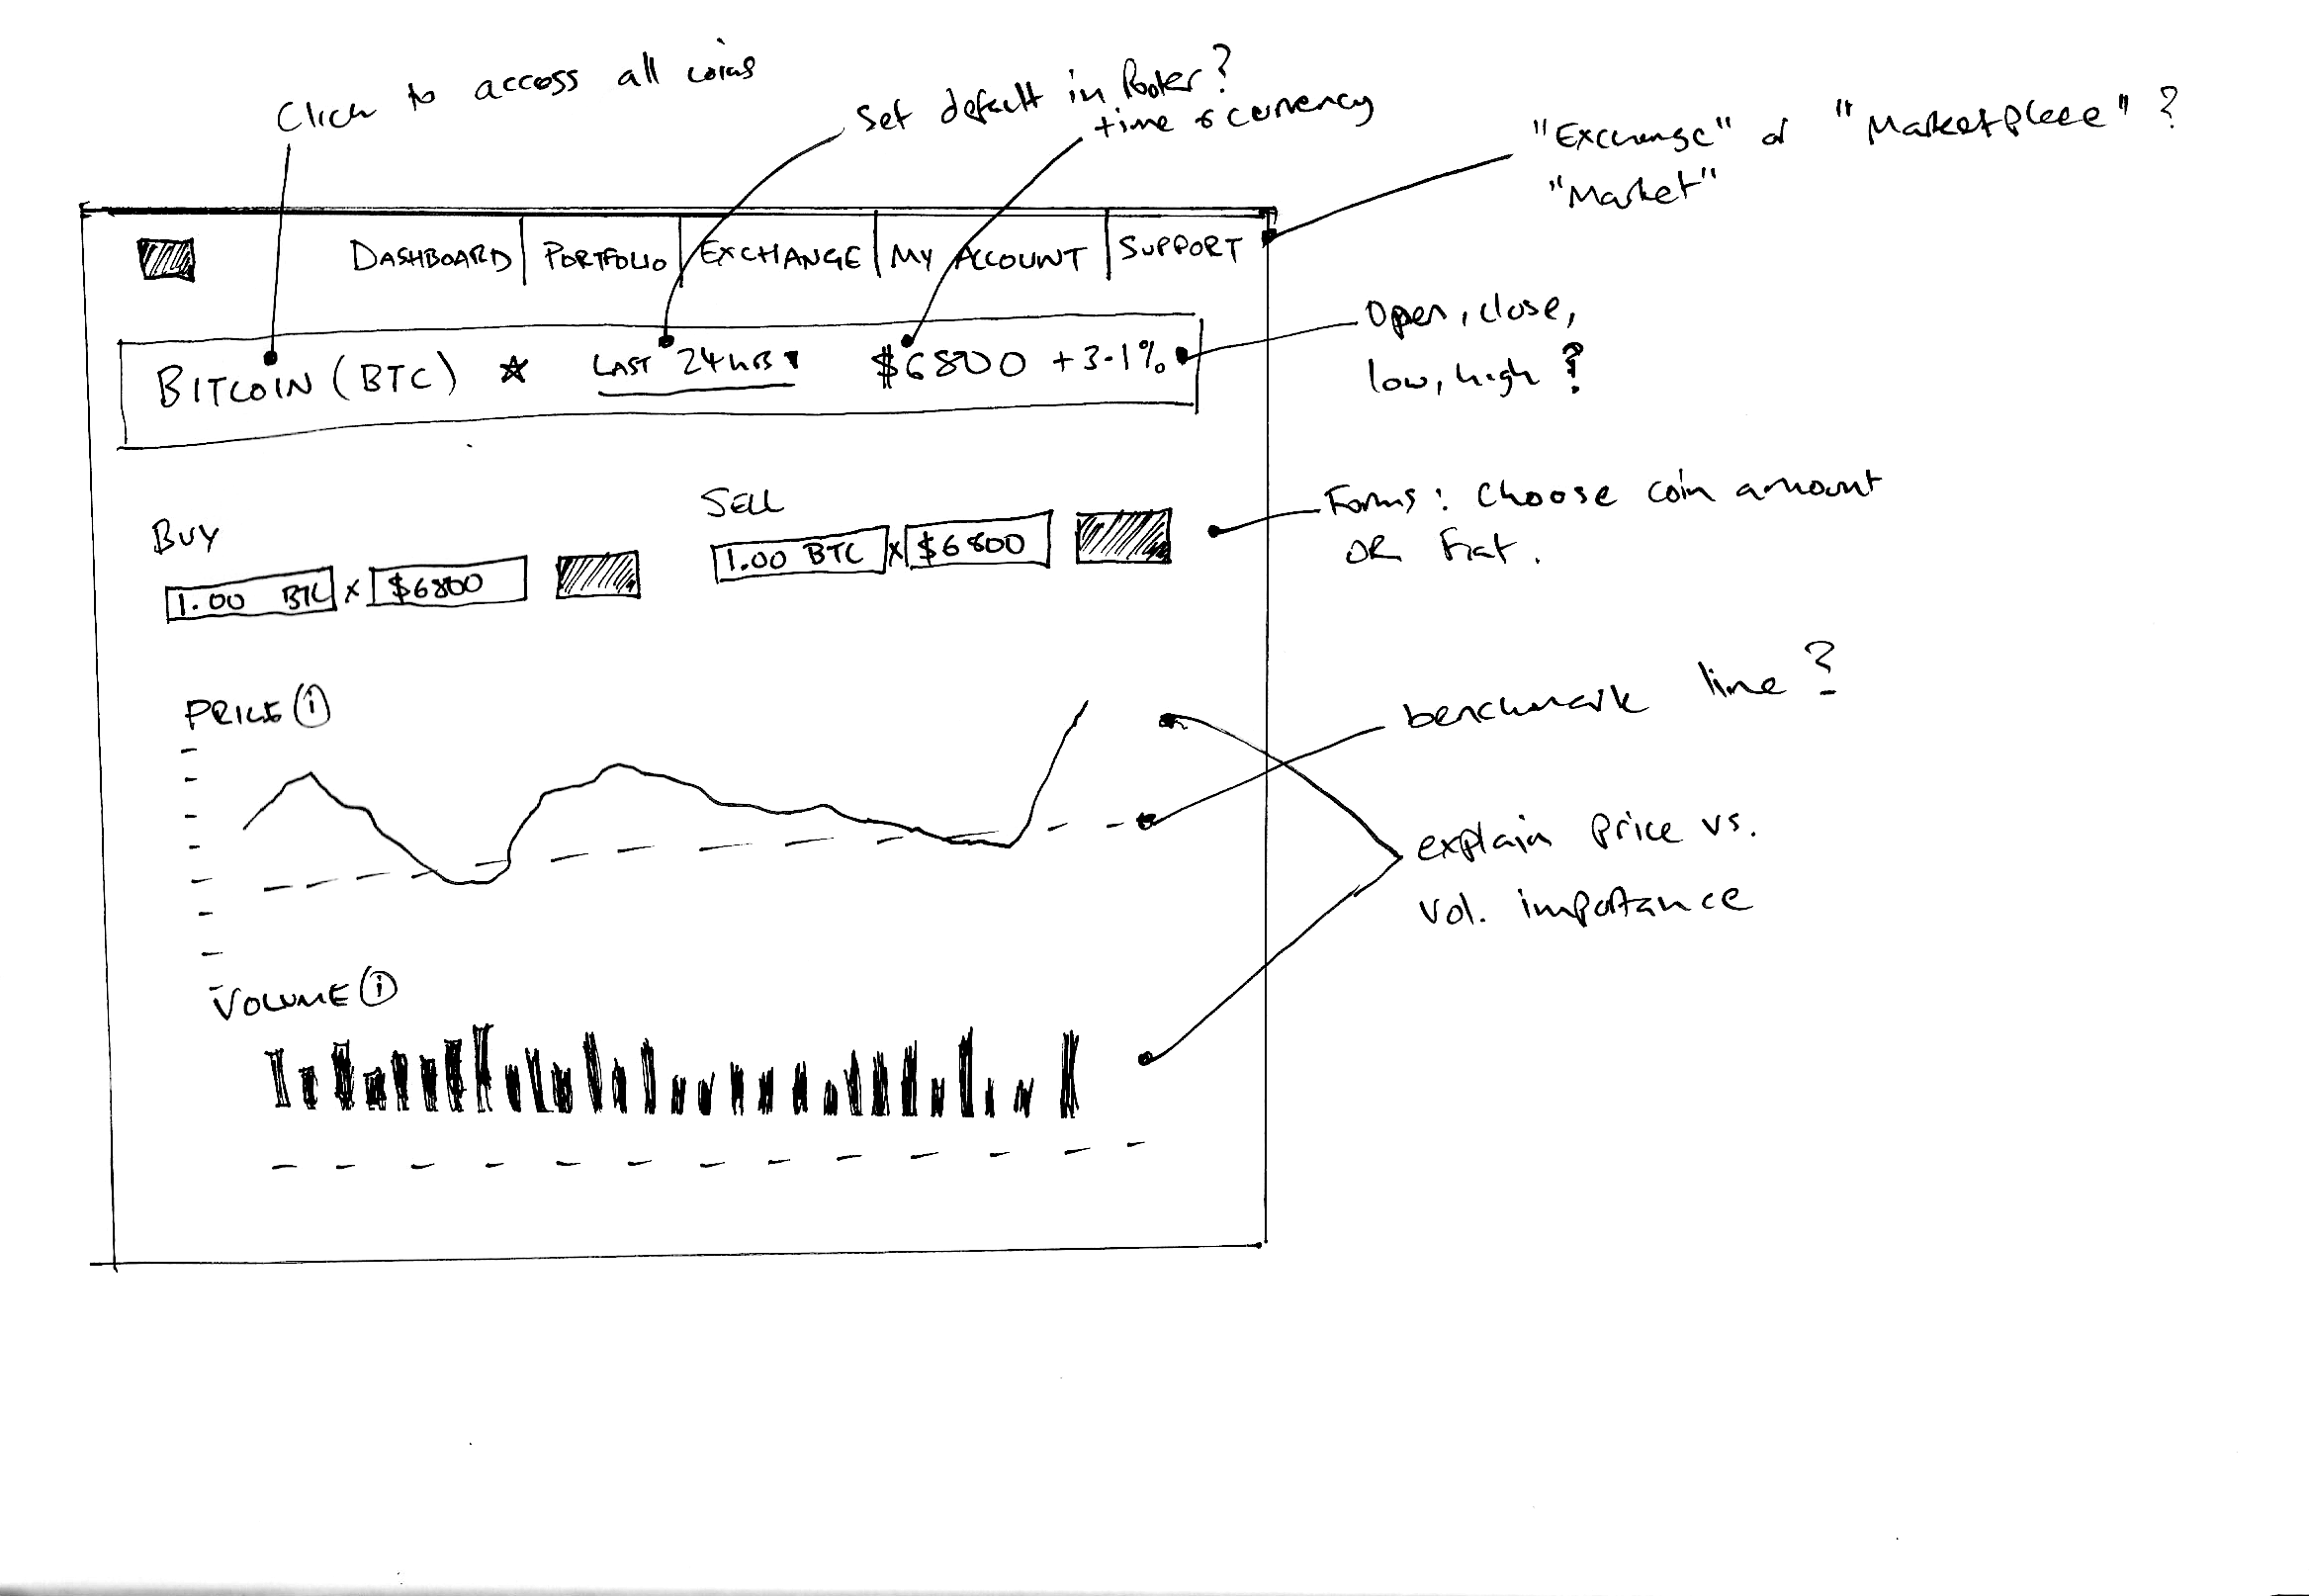 Click to access all coins
Set default in footer?
time & currency
"Exchange" or "Marketplace"?
"Market"
DASHBOARD
PORTFOLIO
EXCHANGE
MY ACCOUNT
SUPPORT
BITCOIN (BTC)
LAST 24HRS
$6800 +3.1%
Open, close,
low, high?
BUY
1.00 BTC x $6800
SELL
1.00 BTC x $6800
Forms: Choose coin amount
OR Fiat.
PRICE i
benchmark line?
explain price vs.
vol. importance
VOLUME i